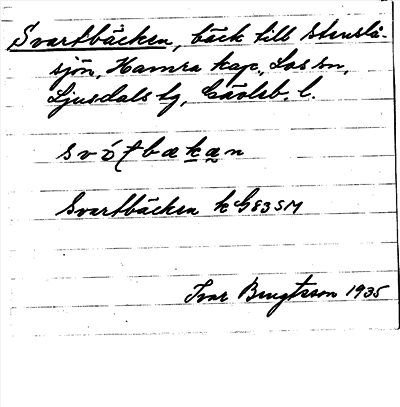 Svartbäcken, bäck till Stenslå-
sjön, Hamra kap., Los sn,
Ljusdals tg, Gävleb. l.
Svartbäcken k G83SM
Ivar Bengtsson 1935